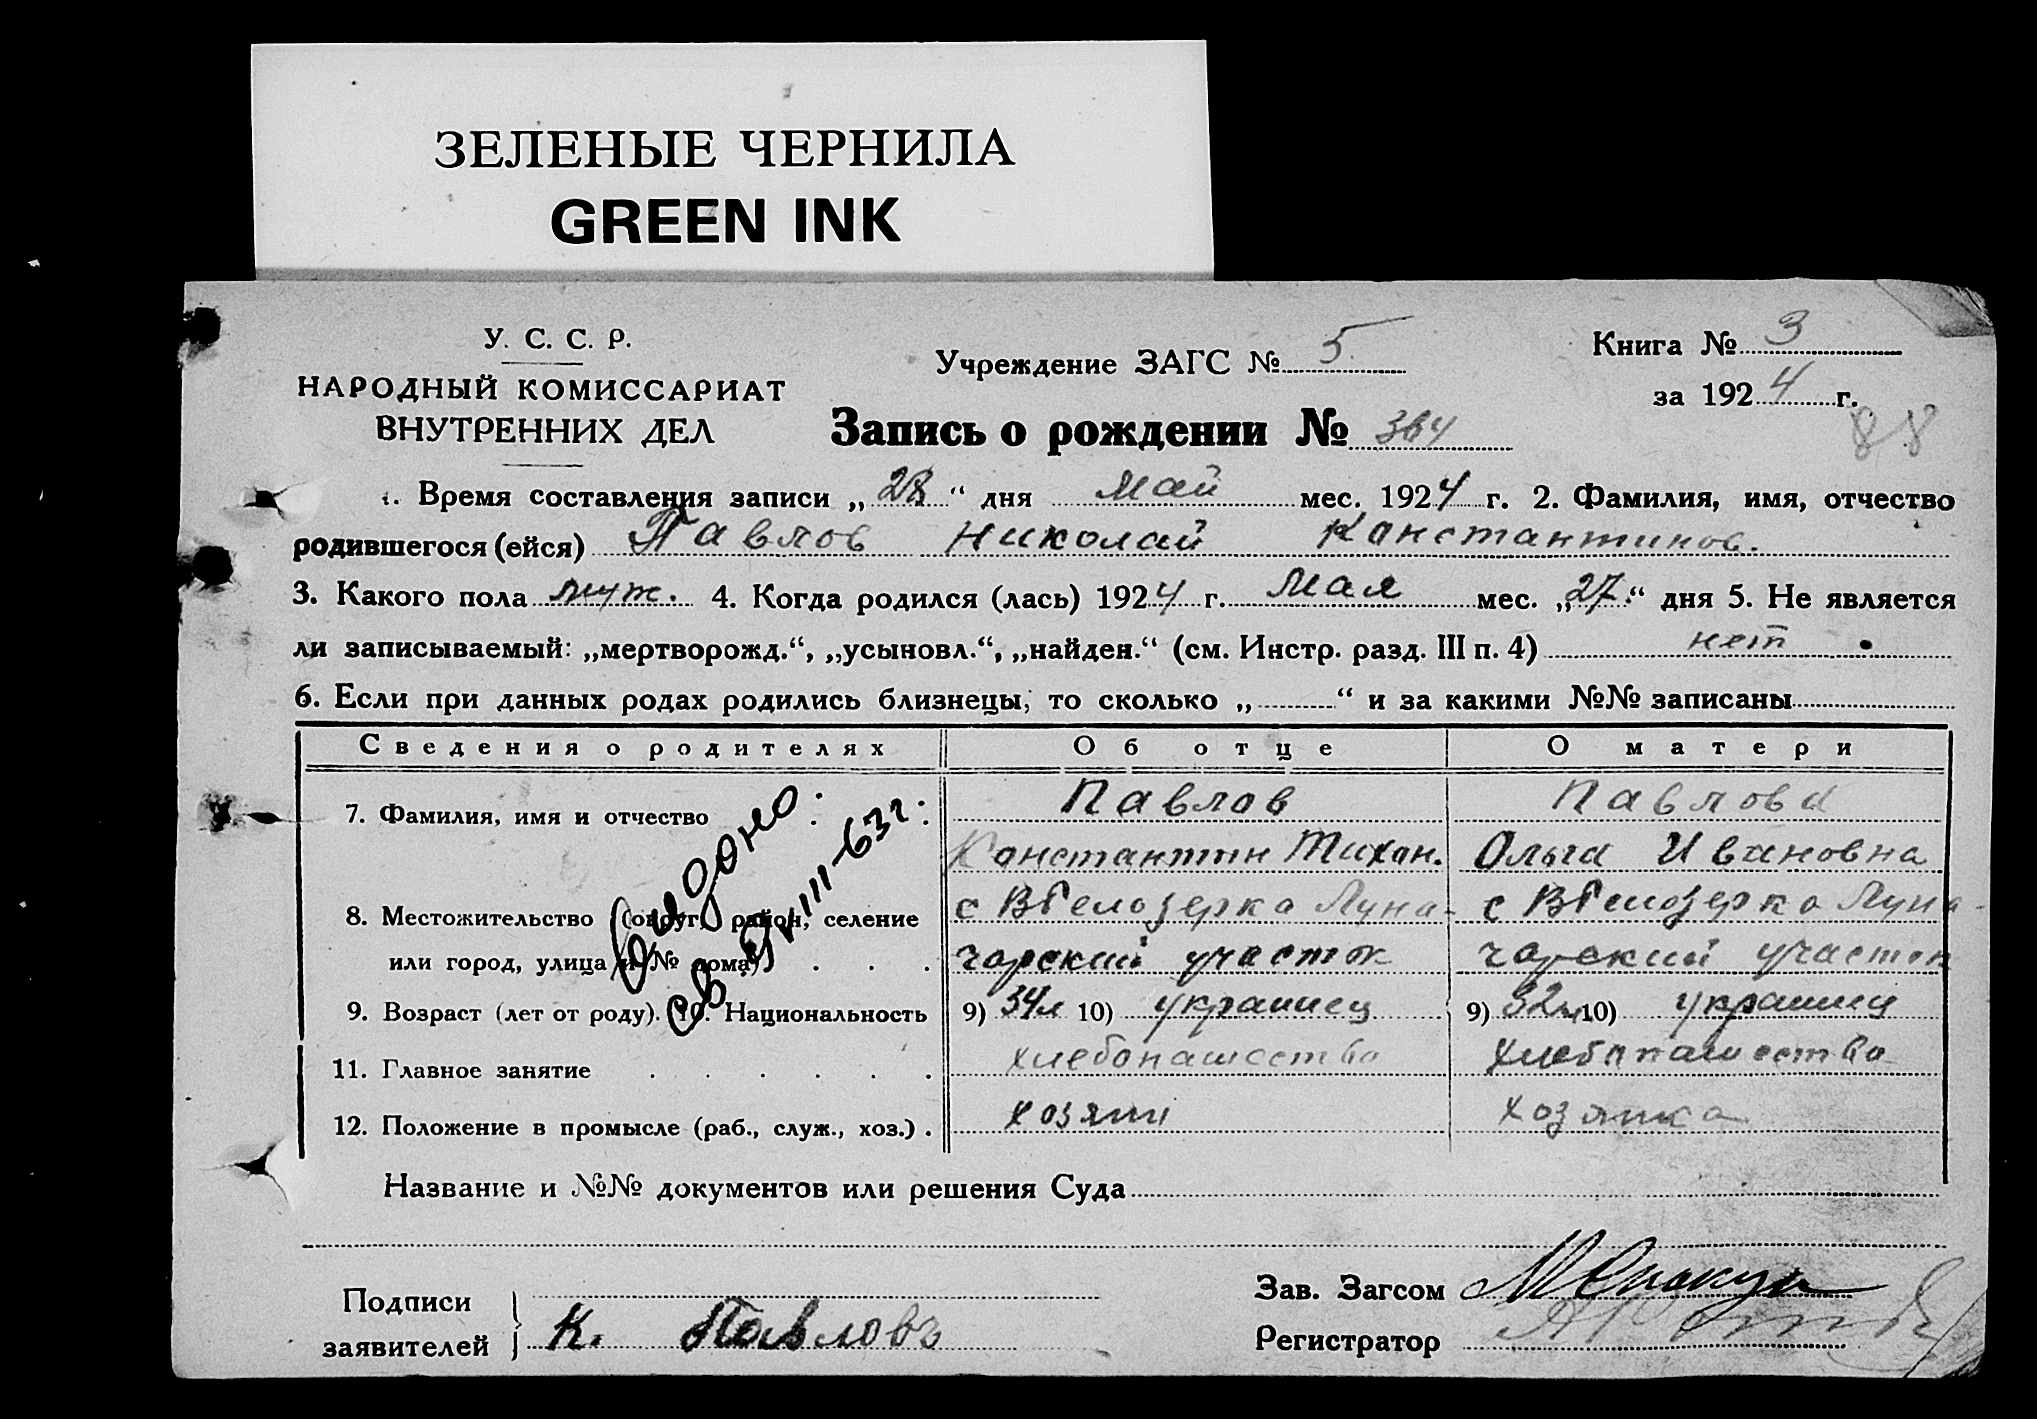 ЗЕЛЕНЫЕ ЧЕРНИЛА
GREEN INK
У. С. С. Р.
НАРОДНЫЙ КОМИССАРИАТ
ВНУТРЕННИХ ДЕЛ
Учреждение ЗАГС № 5
Книга № 3
за 1924 г.
88
Запись о рождении № 364
1. Время составления записи „28“ дня Май мес. 1924 г. 2. Фамилия, имя, отчество
родившегося (ейся) Павлов Николай Константинов.
3. Какого пола муж. 4. Когда родился (лась) 1924 г. Мая мес. „27“ дня 5. Не является
ли записываемый: „мертворожд.“, „усыновл.“, „найден.“ (см. Инстр. разд. III п. 4) нет
6. Если при данных родах родились близнецы, то сколько „ “ и за какими №№ записаны
Сведения о родителях Об отце О матери
7. Фамилия, имя и отчество Павлов Павлова
Константин Тихон. Ольга Ивановна
8. Местожительство (округ, район, селение с ВБелозерка Луна- с ВБелозерка Луна-
или город, улица и № дома) чарский участок чарский участок
9. Возраст (лет от роду). 10. Национальность 9) 34л 10) украинец 9) 32л 10) украинец
11. Главное занятие хлебопашество хлебопашество
12. Положение в промысле (раб., служ., хоз.) хозяин хозяйка
Видано:
VIII-63г.
Название и №№ документов или решения Суда
Подписи
заявителей К. Павловъ
Зав. Загсом
Регистратор